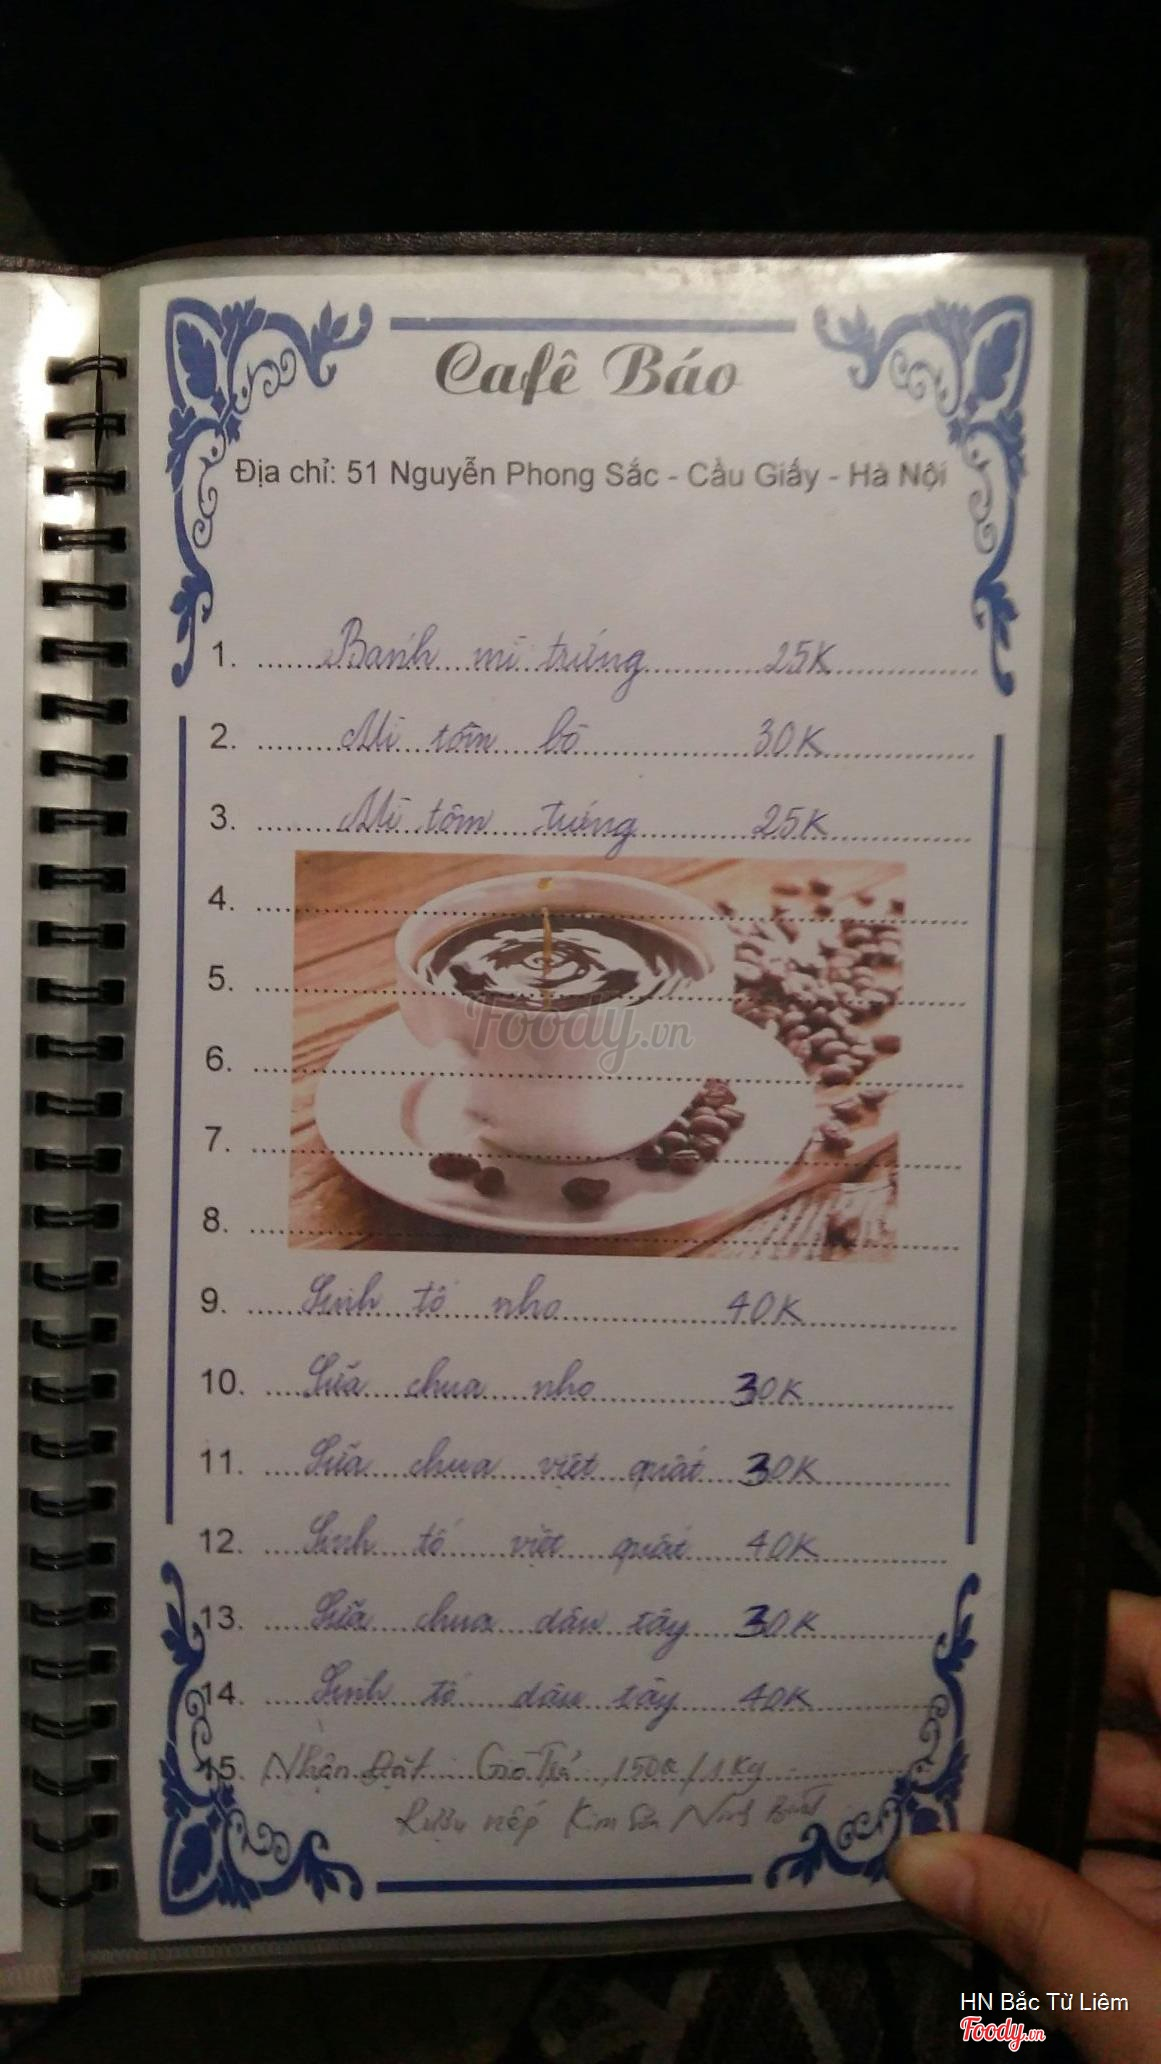 Cafê Báo
Địa chỉ: 51 Nguyễn Phong Sắc - Cầu Giấy - Hà Nội
1. Bánh mì trứng 25K
2. Mì tôm bò 30K
3. Mì tôm trứng 25K
4.
5.
Foody.vn
6.
7.
8.
9. Sinh tố nho 40K
10. Sữa chua nho 30K
11. Sữa chua việt quất 30K
12. Sinh tố việt quất 40K
13. Sữa chua dâu tây 30K
14. Sinh tố dâu tây 40K
15. Nhận Đặt Giò 150k/1Kg
Rượu nếp Kim Sơn Ninh Bình
HN Bắc Từ Liêm
Foody.vn